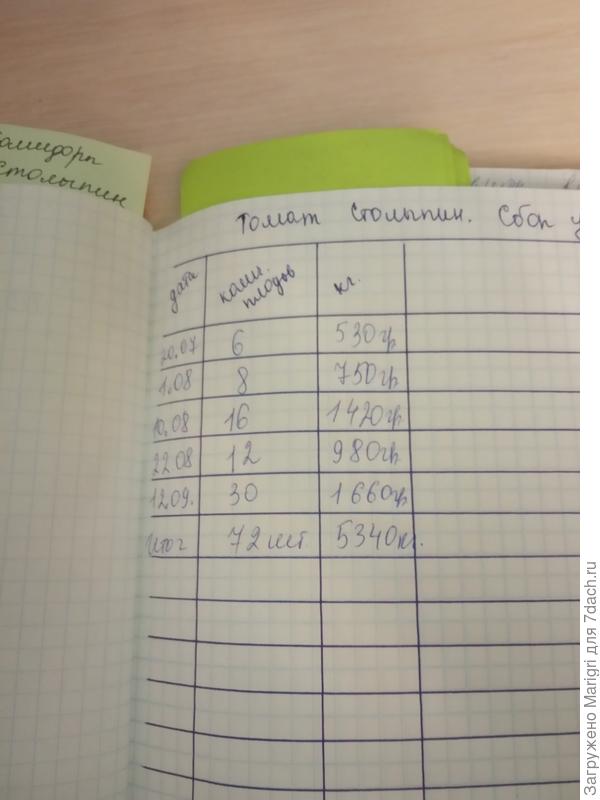 Помидоры
Столыпин
Томат Столыпин. Сбор
дата колич. плодов кг.
20.07 6 530гр
1.08 8 750гр
10.08 16 1420гр
22 08 12 980гр
12 09. 30 1660гр
Итог 72 шт 5340кг.
Загружено Marigri для 7dach.ru